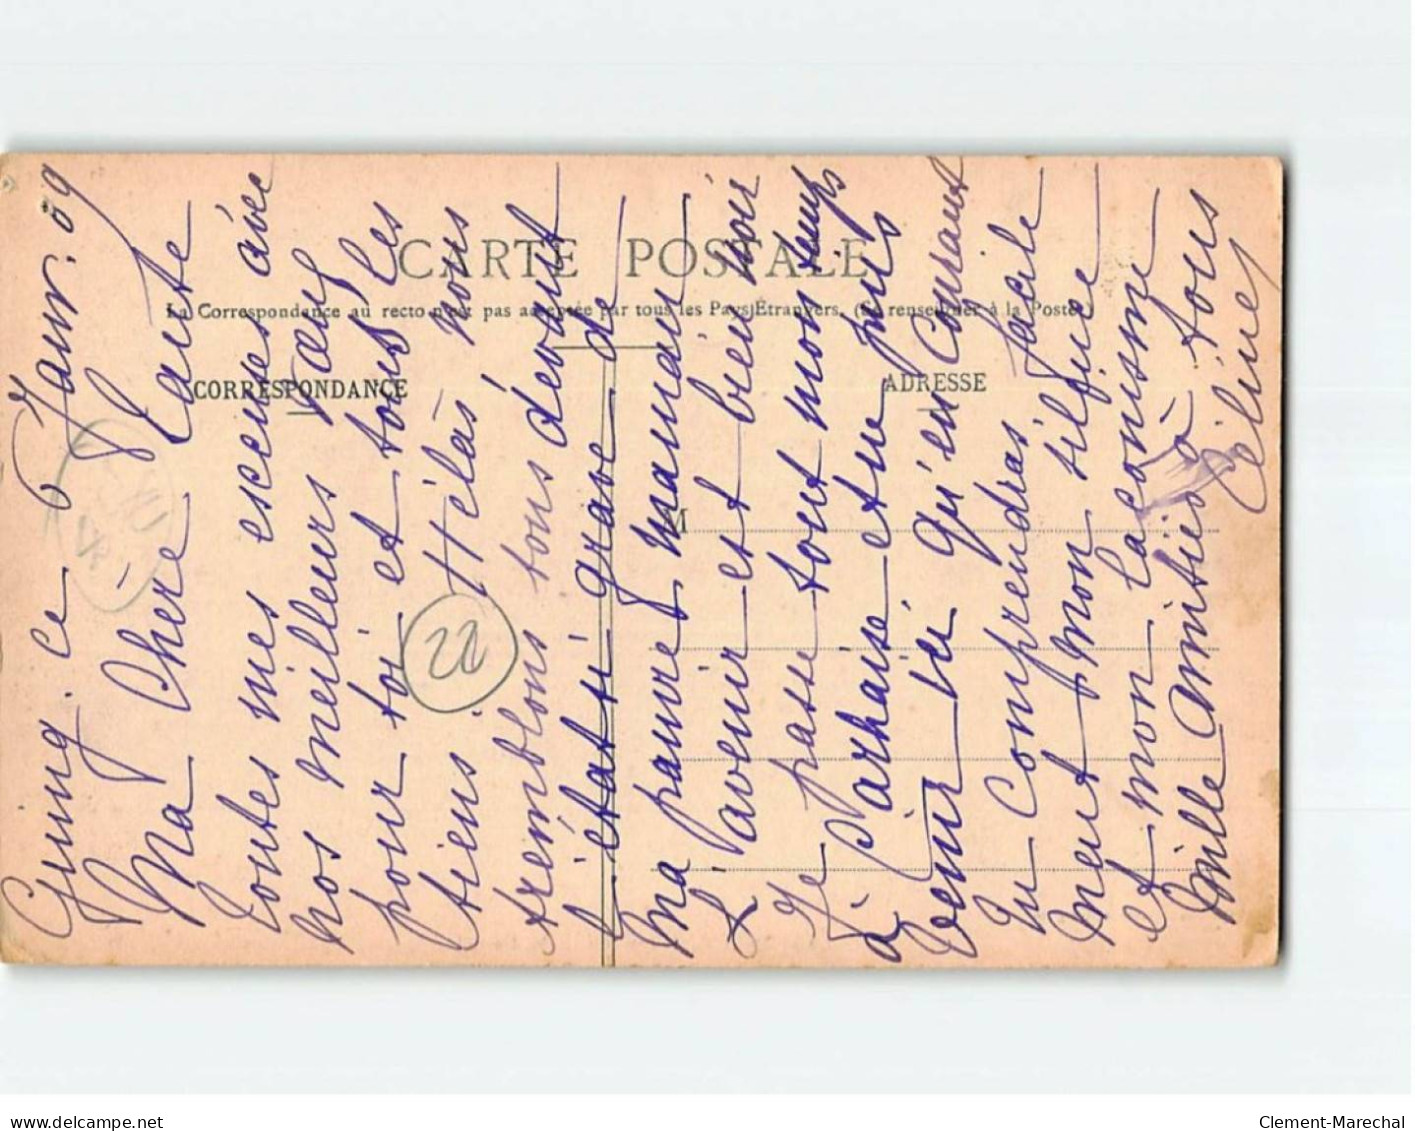 Guing. ce 6 Janv. 09
Ma Chère Tante
Toutes mes escuses avec
nos meilleurs vœux
pour toi et tous les
tiens. Hélas nous
tremblons tous devant
l'état si grave de
Ma pauvre maman
L'avenir est bien noir
Je passe tout mon temps
à Parhaise et ne puis
venir ici qu'en Courant
Tu Comprendras facile
ment mon silence
et mon laconisme
Mille amitiés à tous
Céline
22
CARTE POSTALE
La Correspondance au recto n'est pas acceptée par tous les Pays Etrangers. (Se renseigner à la Poste)
CORRESPONDANCE
ADRESSE
M
www.delcampe.net
Clement-Marechal